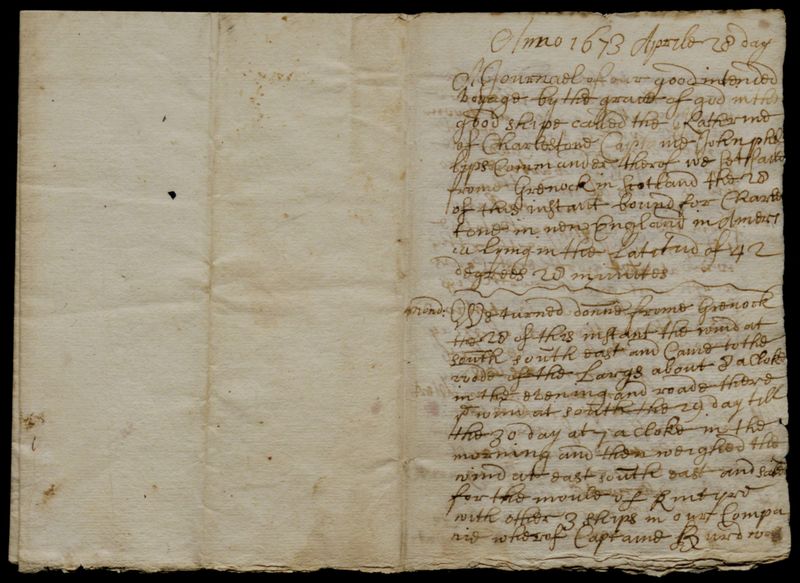 Anno 1673 Aprile 28 day
A Journael of our good intended
voyage by the grace of god in the
good shipe called the Katherine
of Charlestone Captaine John phi
lips Commander therof we set saile
frome Grenock in scotland the 28
of this instant bound for Charls
tone in new England in Ameri
ca lying in the Latitud of 42
degrees 28 minuites
mond: Wee turned donne frome Grenock
the 28 of this instant the wind at
south south east and Came to the
rode of the Largs about 8 a cloke
in the evening and roade there
wind at south the 29 day till
the 30 day at 7 a cloke in the
morning and then weighed the
wind at east south east and saled
for the moule of Kintyre
with other 3 ships in our Compa
nie wherof Captaine Burd was